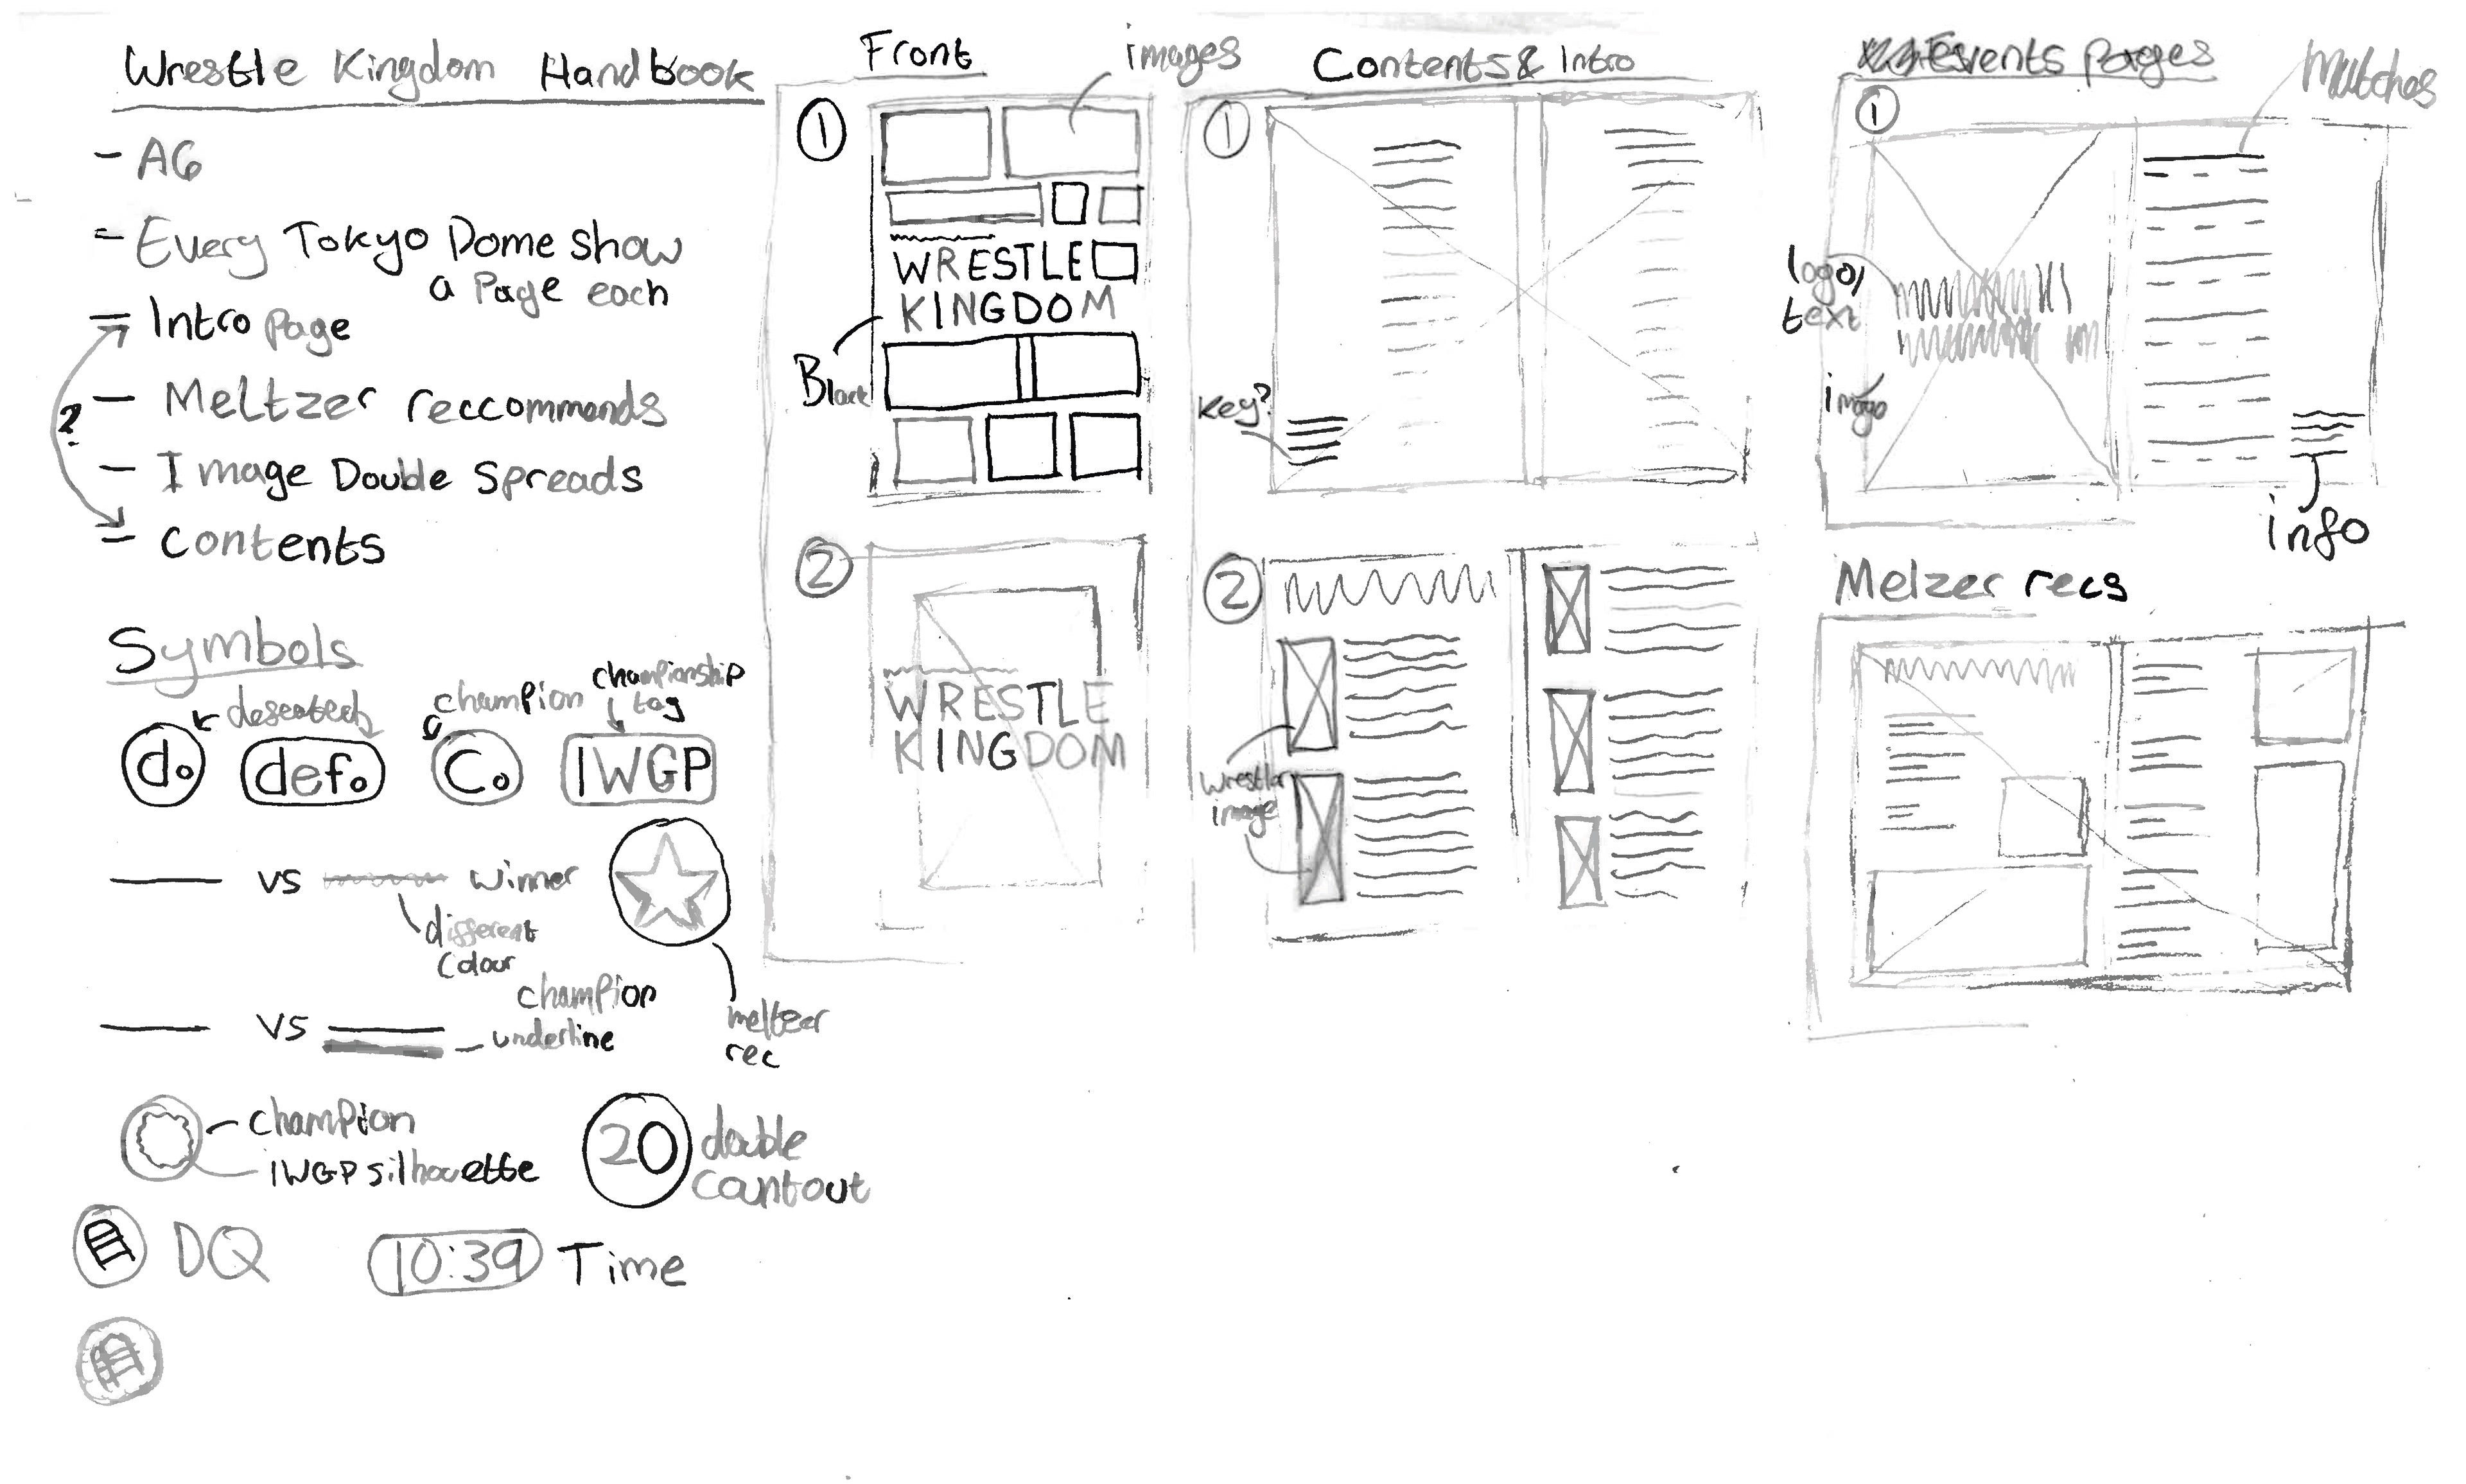 Wrestle Kingdom Handbook
- A6
- Every Tokyo Dome show
a Page each
- Intro page
?
- Meltzer reccommends
- Image Double Spreads
- Contents
Symbols
defeated
champion
championship
tag
d.
def.
C.
IWGP
vs
winner
different
Colour
meltzer
rec
vs
champion
underline
champion
IWGP silhouette
20
double
Countout
DQ
10:39
Time
Front
images
1
WRESTLE
KINGDOM
Black
2
WRESTLE
KINGDOM
Contents & Intro
1
Key?
2
wrestler
image
Events pages
Matches
1
logo/
text
image
info
Melzer recs